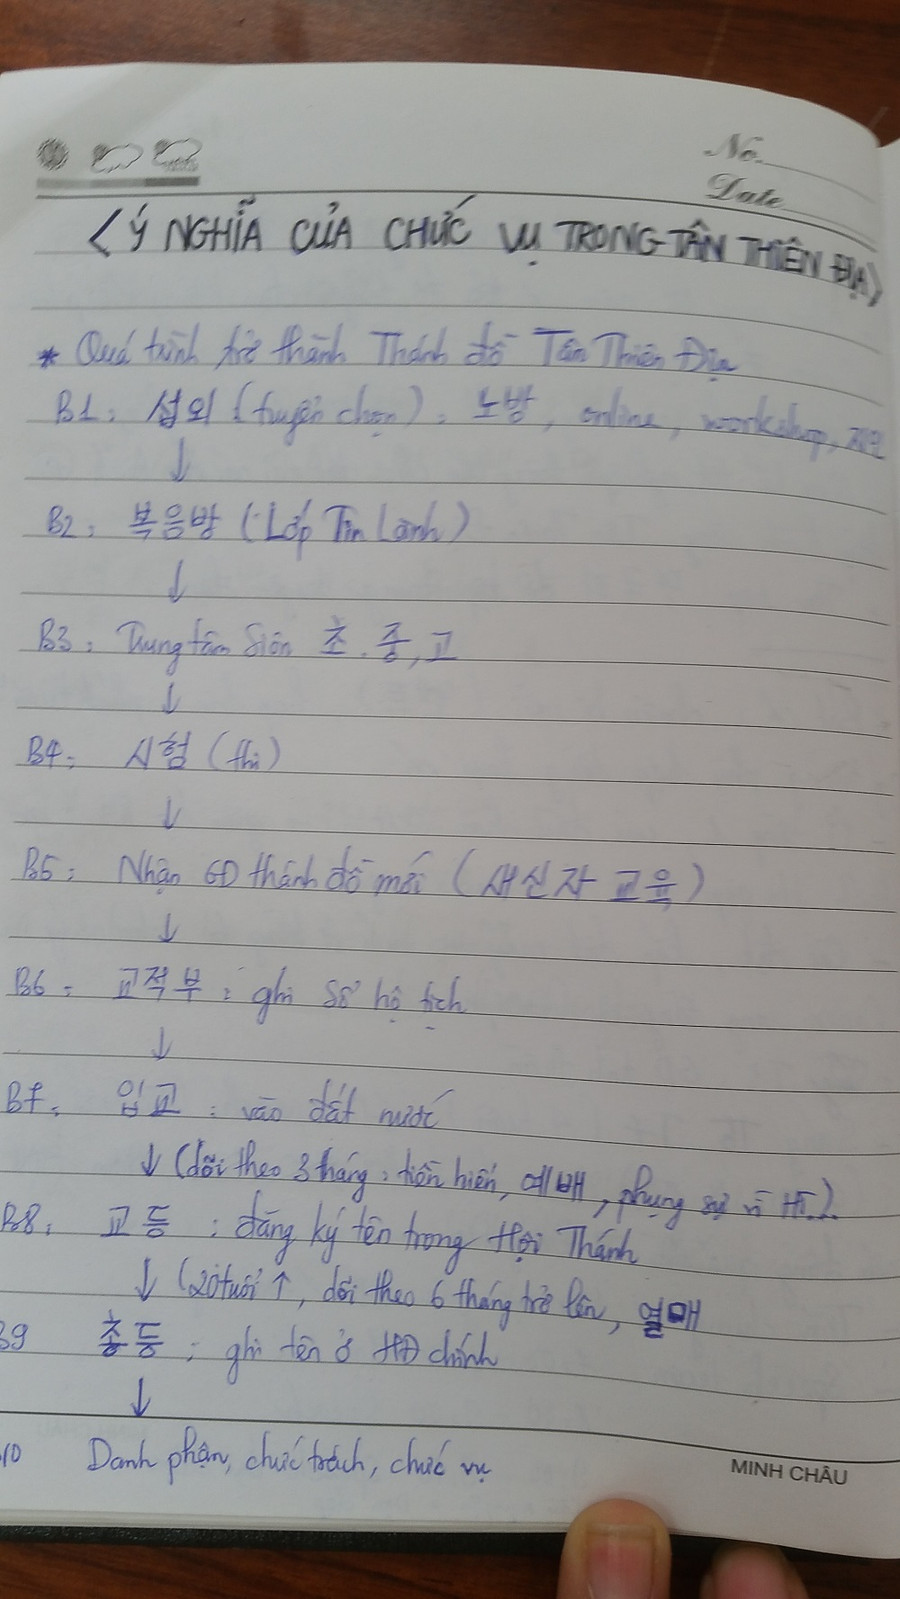 No.
Date
<Ý NGHĨA CỦA CHỨC VỤ TRONG TÂN THIÊN ĐỊA>
* Quá trình trở thành Thánh đồ Tân Thiên Địa
B1: 섭외 (tuyển chọn): 노방, online, workshop,
↓
B2: 복음방 (Lớp Tin Lành)
↓
B3: Trung tâm Siôn 초, 중, 고
↓
B4: 시험 (thi)
↓
B5: Nhận GD thánh đồ mới (새신자 교육)
↓
B6: 교적부: ghi sổ hộ tịch
↓
B7: 입교: vào đất nước
↓ (dõi theo 3 tháng: tiền hiến, 예배, phụng sự vì HT...)
B8: 교등: đăng ký tên trong Hội Thánh
↓ (20 tuổi ↑, dõi theo 6 tháng trở lên, 열매
B9 총등: ghi tên ở HĐ chính
↓
10 Danh phận, chức trách, chức vụ
MINH CHÂU